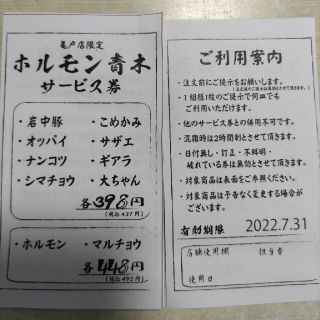 亀戸店限定
ホルモン青木
サービス券
・岩中豚 ・こめかみ
・オッパイ ・サザエ
・ナンコツ ・ギアラ
・シマチョウ ・大ちゃん
各398円
(税込437円)
・ホルモン ・マルチョウ
各448円
(税込492円)
ご利用案内
・注文前にご提示をお願いします。
・1組様1枚のご提示で何皿でも
ご利用いただけます。
・他のサービス券との併用不可です。
・混雑時は2時間制とさせて頂きます。
・日付無し・訂正・不鮮明・
破れている券は無効とさせて頂きます。
・対象商品は表面をご参照ください。
・対象商品は予告なく変更する場合が
ございます。
有効期限 2022.7.31
店舗使用欄 担当者
使用日